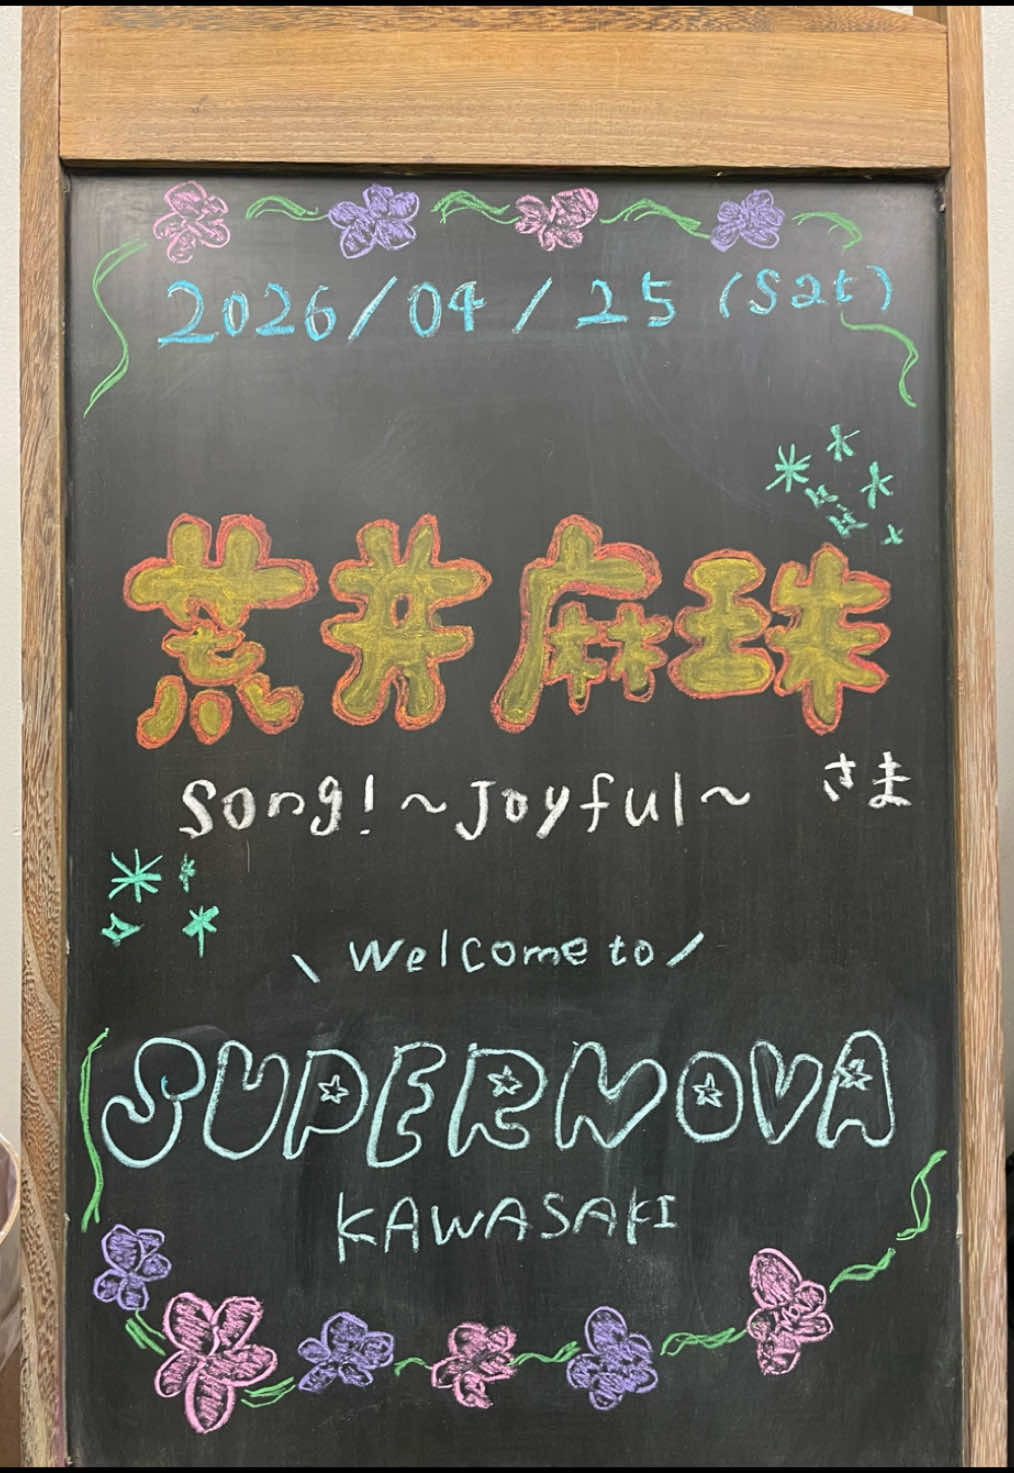 2026/04/25 (Sat)
荒井麻珠
Song!~Joyful~ さま
\ Welcome to /
SUPERNOVA
KAWASAKI